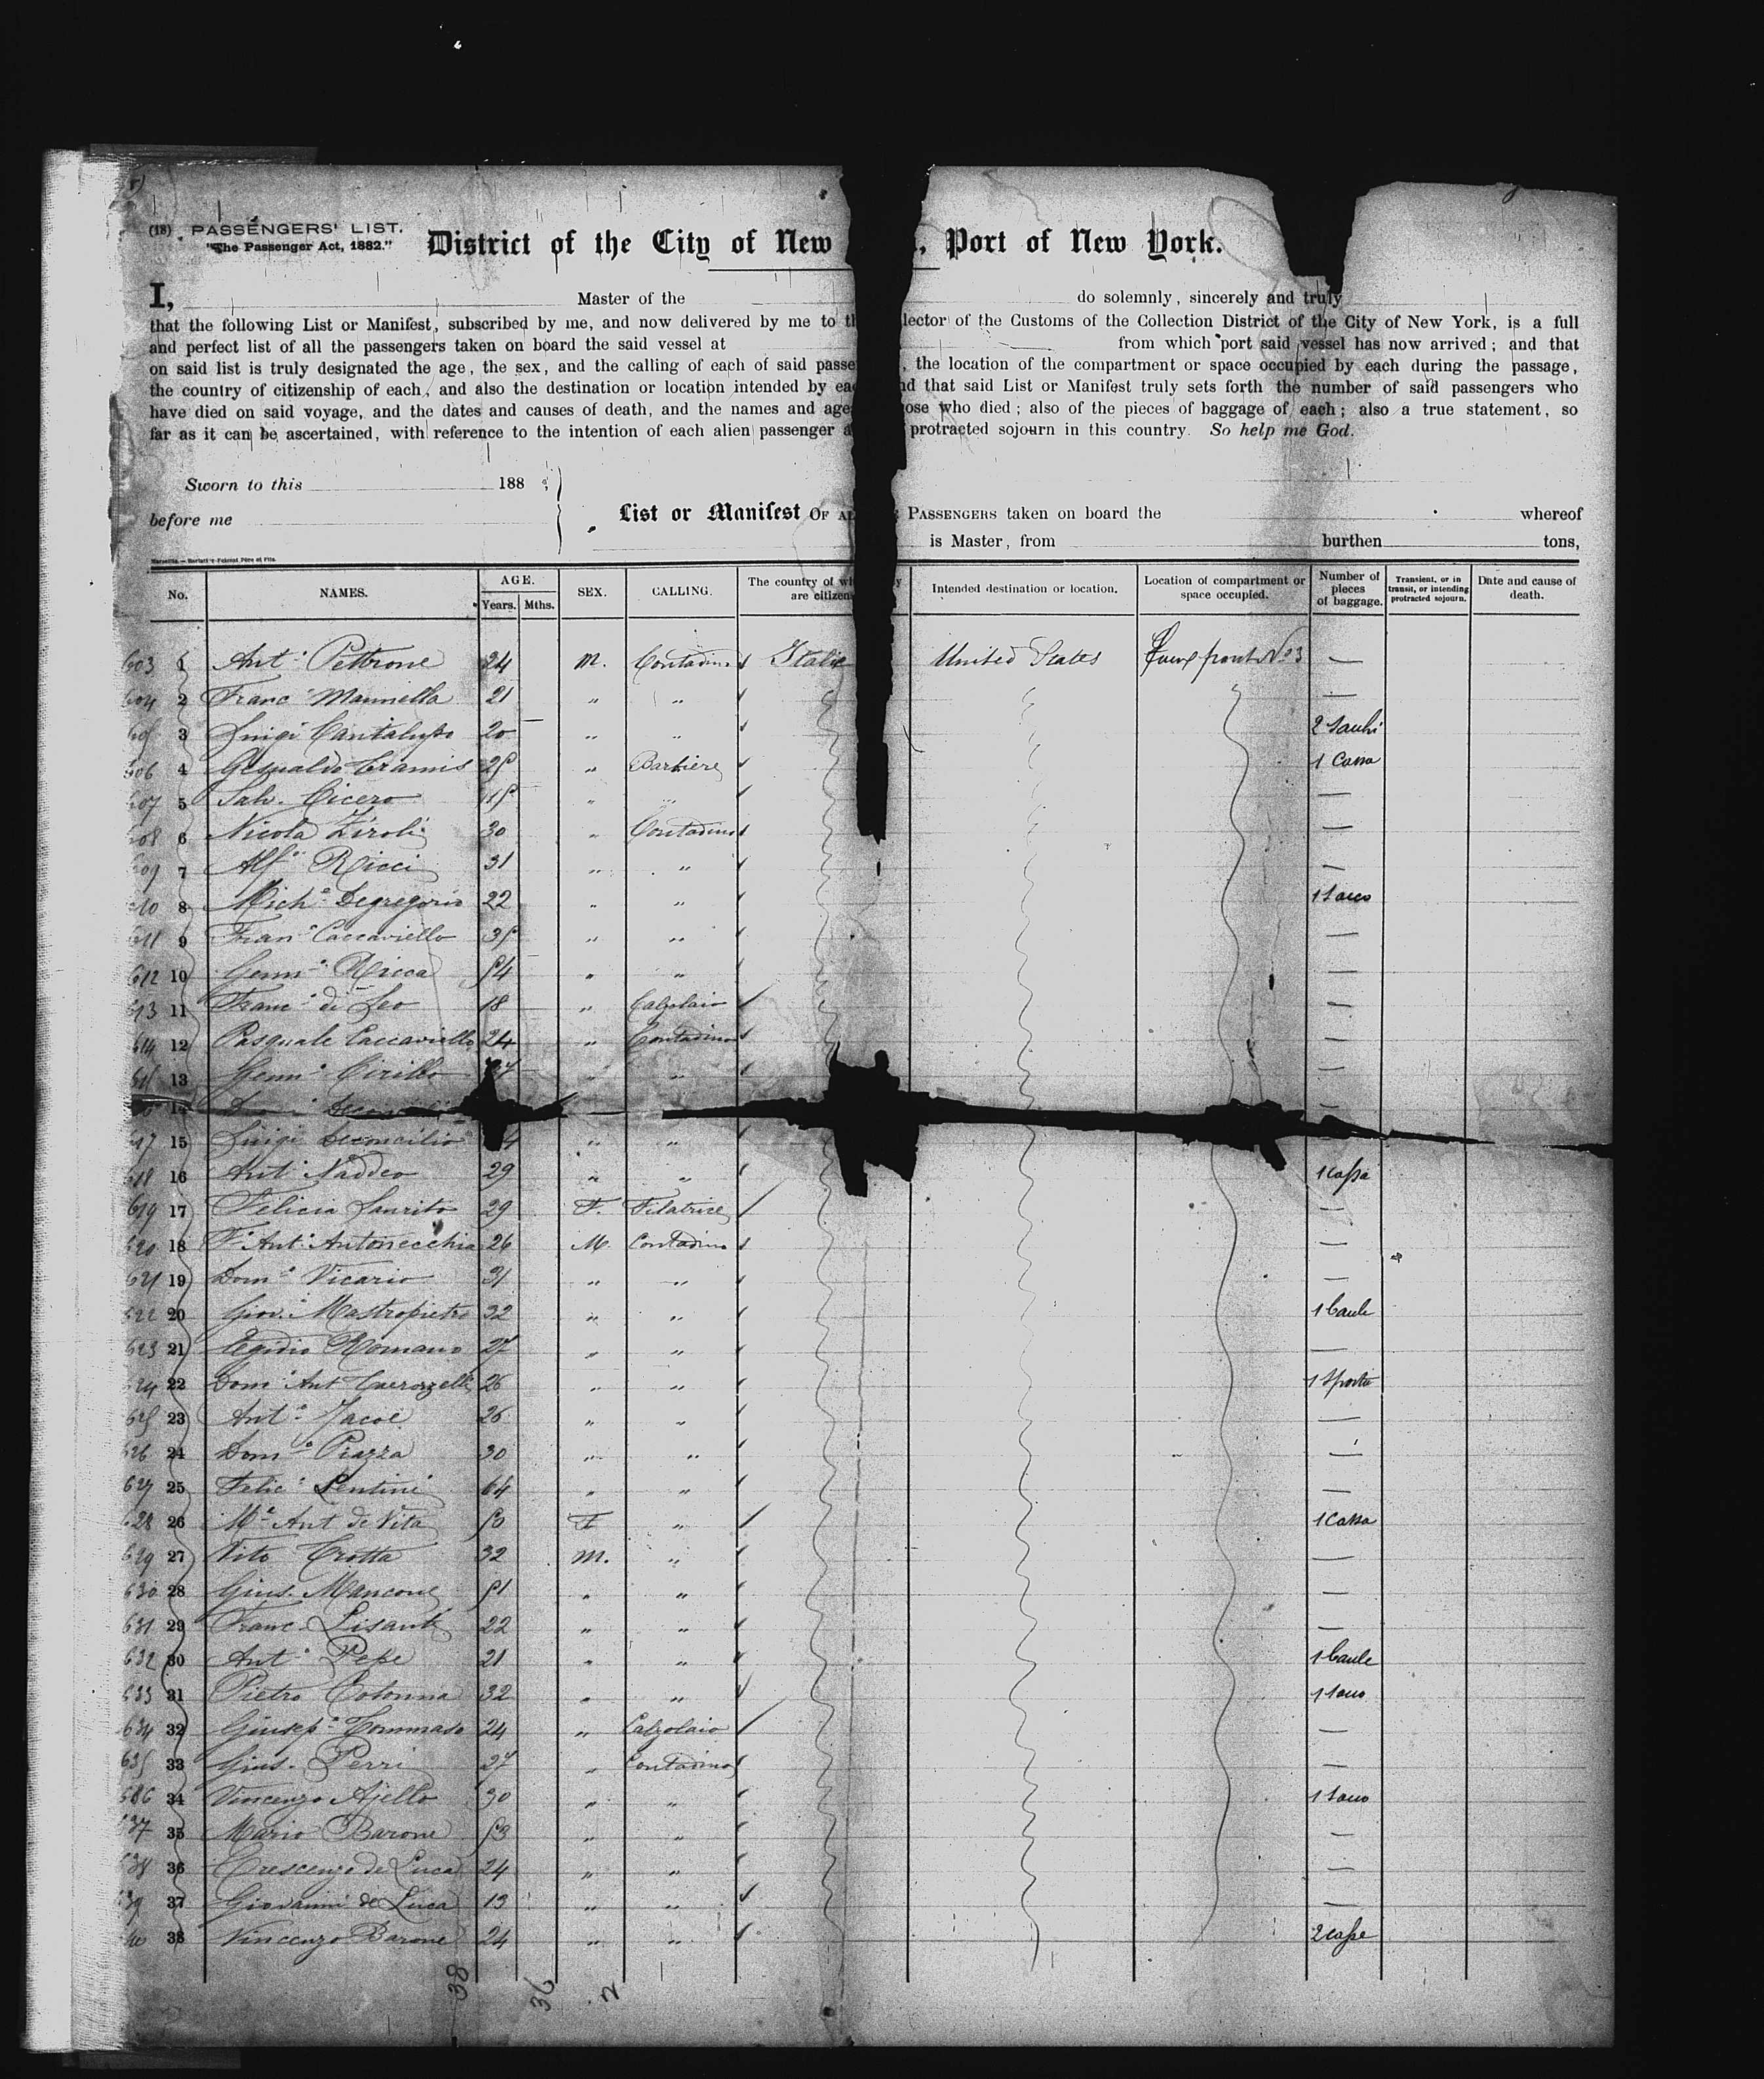 (18) PASSENGERS' LIST.
"The Passenger Act, 1882."
District of the City of New , Port of New York.
I, Master of the do solemnly, sincerely and truly
that the following List or Manifest, subscribed by me, and now delivered by me to lector of the Customs of the Collection District of the City of New York, is a full
and perfect list of all the passengers taken on board the said vessel at from which port said vessel has now arrived; and that
on said list is truly designated the age, the sex, and the calling of each of said passe , the location of the compartment or space occupied by each during the passage,
the country of citizenship of each, and also the destination or location intended by ea nd that said List or Manifest truly sets forth the number of said passengers who
have died on said voyage, and the dates and causes of death, and the names and age ose who died; also of the pieces of baggage of each; also a true statement, so
far as it can be ascertained, with reference to the intention of each alien passenger a protracted sojourn in this country. So help me God.
Sworn to this 188
before me
List or Manifest OF PASSENGERS taken on board the whereof
is Master, from burthen tons,
No. NAMES. AGE. Years. Mths. SEX. CALLING. The country of are citizen Intended destination or location. Location of compartment or space occupied. Number of pieces of baggage. Transient, or in transit, or intending protracted sojourn. Date and cause of death.
603 1 Ant.o Pettrone 24 M. Contadino Italie United States front No 3 —
604 2 Franc.o Manniella 21 " " —
605 3 Luigi Cantalupo 20 " "
606 4 Gesualdo Cramis 25 " Barbiere 1 Cassa
607 5 Salv. Cicero " " —
608 6 Nicola Ziroli 30 " Contadino —
609 7 Alf.o Ricci 31 " " —
610 8 Mich.e Degregorio 22 " " 1 Sacco
611 9 Fran.o Caccaviello 35 " " —
612 10 Genn.o Ricca 54 " " —
613 11 Franc.o di Leo 18 " Calzolaio —
614 12 Pasquale Caccaviello 24 " Contadino —
615 13 Genn.o Cirillo " " —
14 —
617 15 Luigi Deconcilio " "
618 16 Ant.o Naddeo 29 " " 1 Cassa
619 17 Felicia Laurito 29 F. Filatrice —
620 18 F. Ant.o Antonecchia 26 M. Contadino —
621 19 Dom.o Vicario 31 " " —
622 20 Giov.i Mastropietro 32 " " 1 Baule
623 21 Egidio Romano 27 " " —
624 22 Dom.o Ant 26 " " 1 Sporta
625 23 Ant.o Jacoe 26 " " —
626 24 Dom.o Piazza 30 " " —
627 25 Felic.e Lentini 64 " " —
628 26 M.a Ant de Vita 50 F " 1 Cassa
629 27 Vito Trotta 32 M. " —
630 28 Gius. Mancone 51 " " —
631 29 Franc. Lisanti 22 " " —
632 30 Ant.o Pepe 21 " " 1 Baule
633 31 Pietro Colonna 32 " " 1 Sacco
634 32 Giusep.e Tommaso 24 " Calzolaio —
635 33 Gius. Perri 27 " Contadino —
636 34 Vincenzo Ajello 30 " " 1 Sacco
637 35 Mario Barone 53 " " —
638 36 Crescenzo de Luca 24 " " —
639 37 Giovanni de Luca 13 " " —
640 38 Vincenzo Barone 24 " " 2 Casse
38 36 2